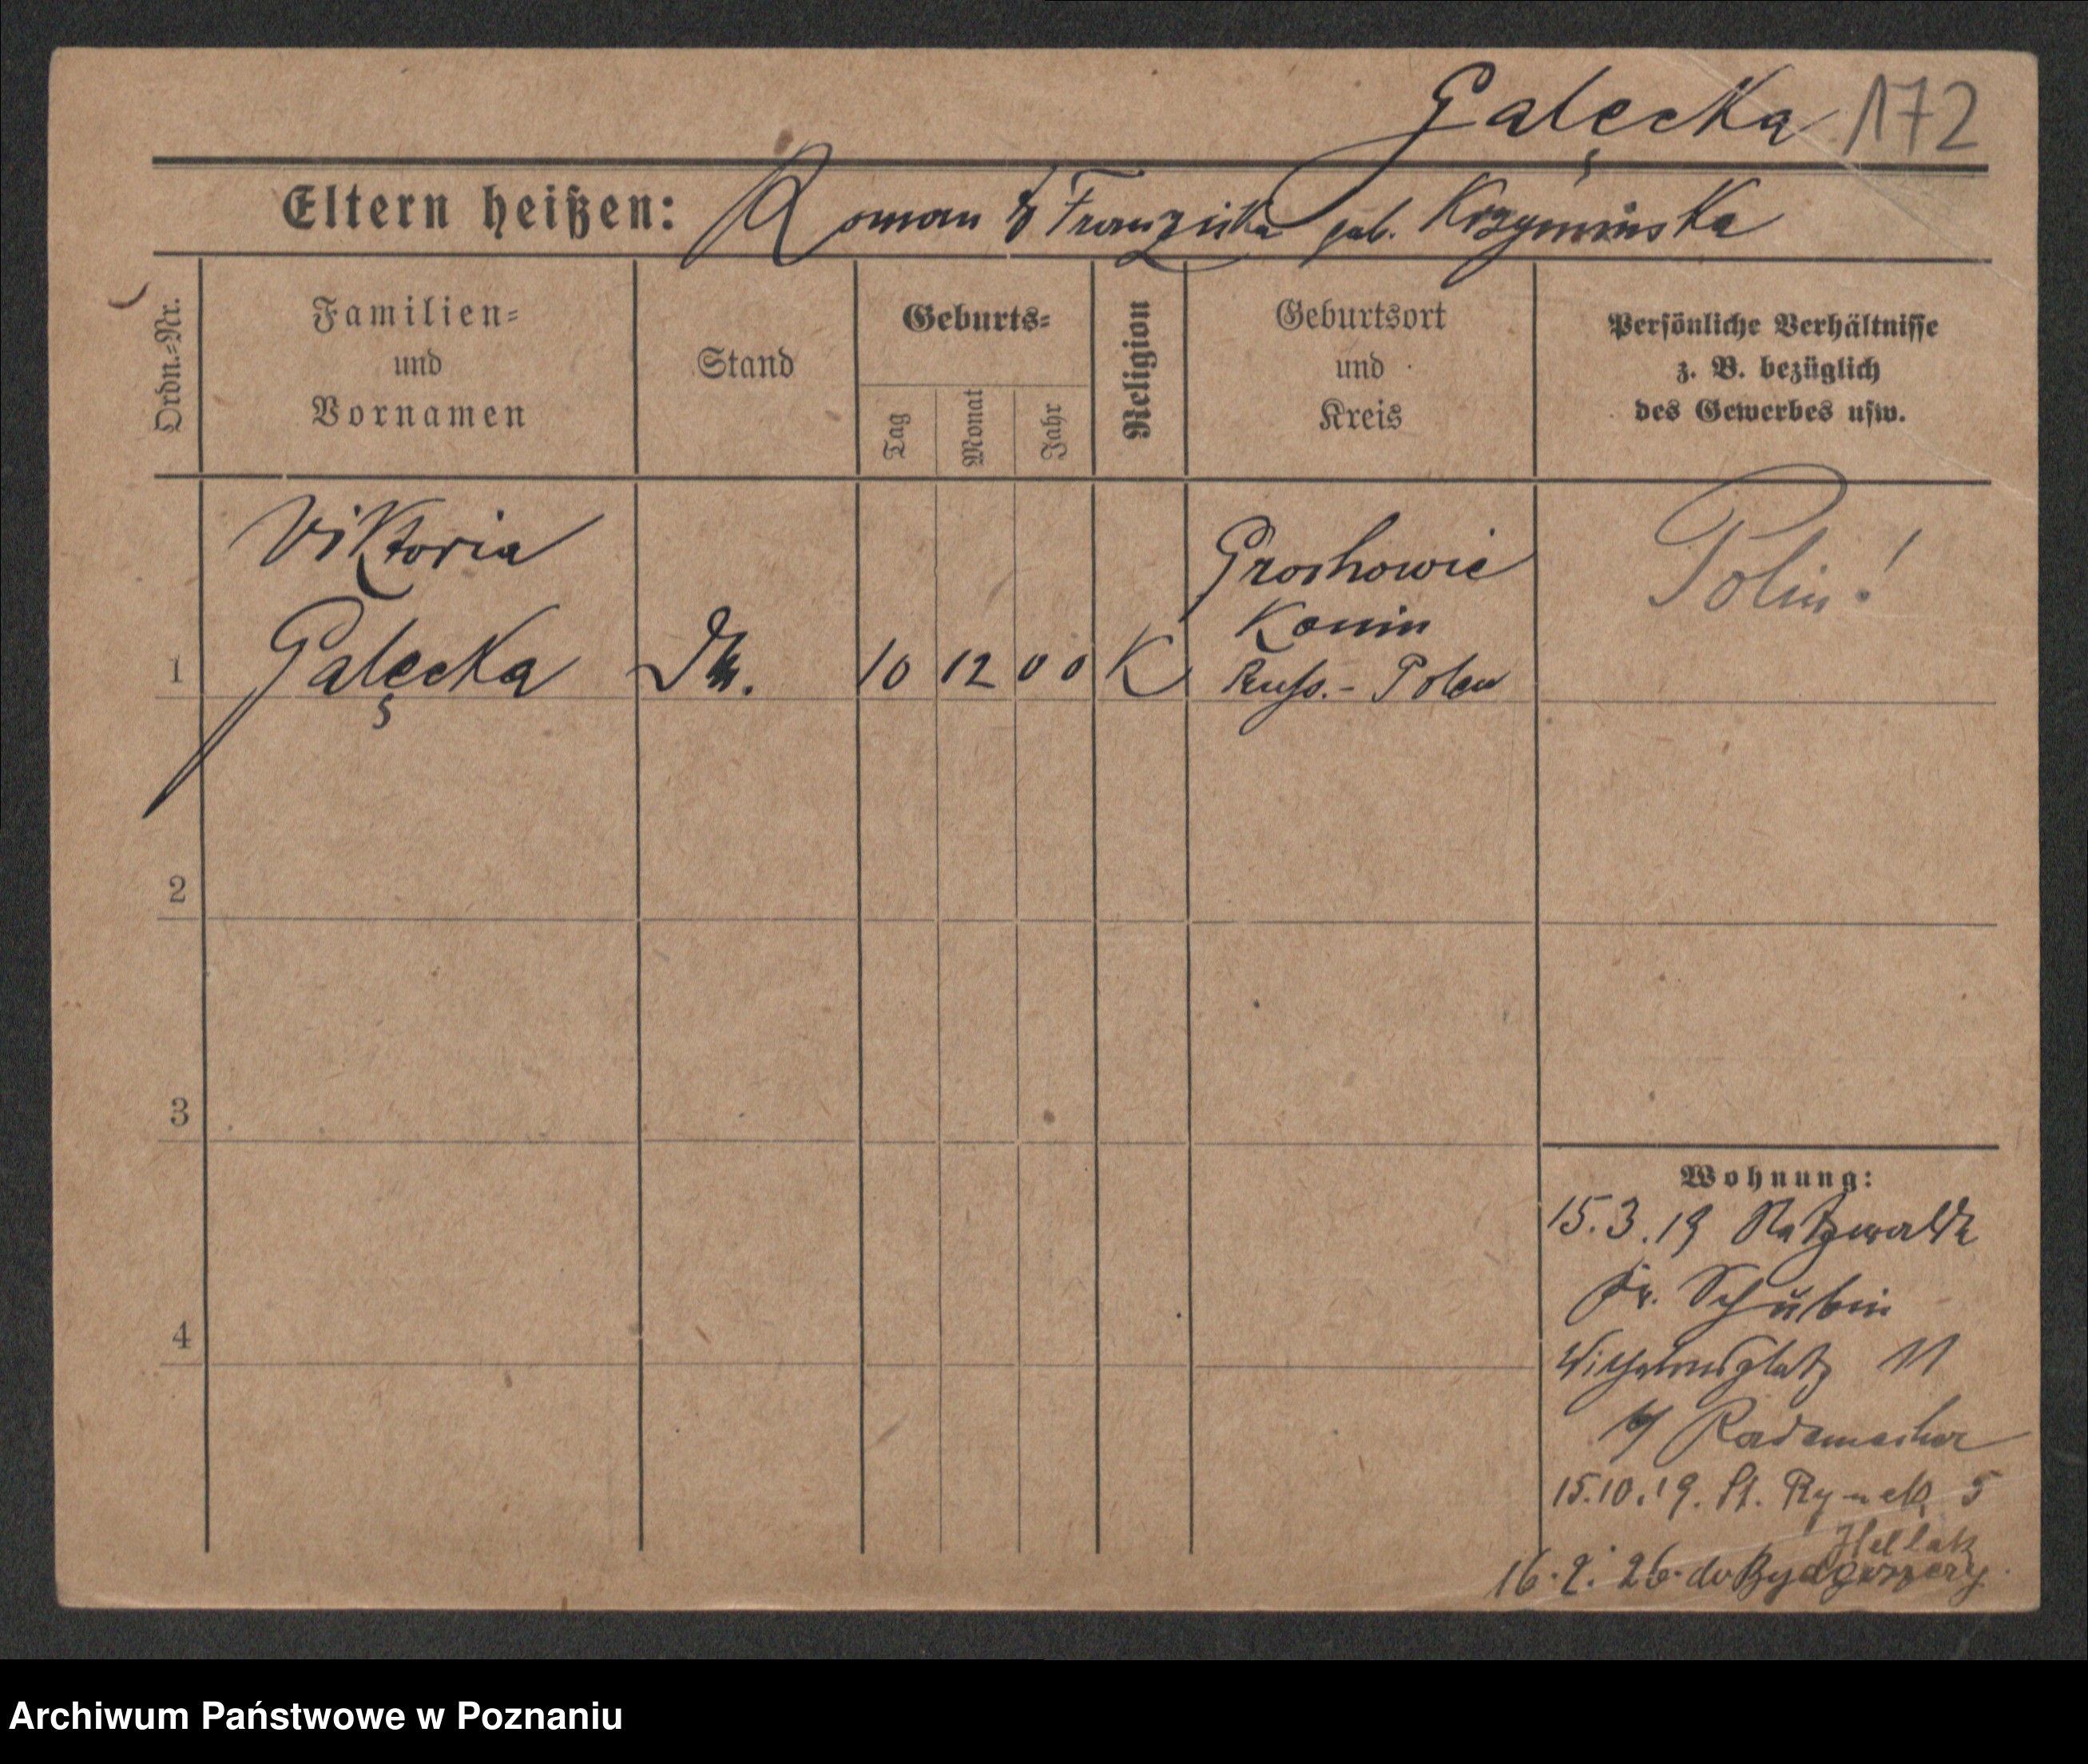 Galęcka 172
Eltern heißen: Roman & Franziska geb. Krzyminska
Ordn.=Nr.
Familien=
und
Vornamen
Stand
Geburts=
Tag
Monat
Jahr
Religion
Geburtsort
und
Kreis
Persönliche Verhältnisse
z. B. bezüglich
des Gewerbes usw.
Viktoria
Galęcka
1
10 12 00 K
Grochowic
Konin
Russ. - Polen
Polin!
2
3
4
Wohnung:
15.3.19 Netzwalde
Kr. Schubin
Wilhelmsplatz 11
b/ Rademacher
15.10.19. St. Rynek 5
16.2.26. do Bydgoszczy
Archiwum Państwowe w Poznaniu